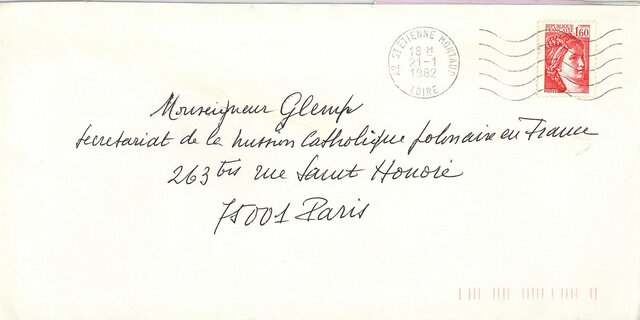 42 ST ETIENNE MONTAUD
18 H
21-1
1982
LOIRE
1,60
Monseigneur Glemp
secretariat de la mission Catholique polonaise en France
263 bis rue Saint Honoré
75001 Paris